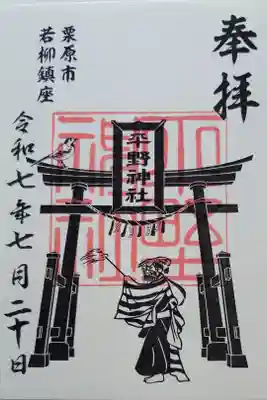 奉拝
平野神社
平野
神社
栗原市
若柳鎮座
令和七年七月二十日